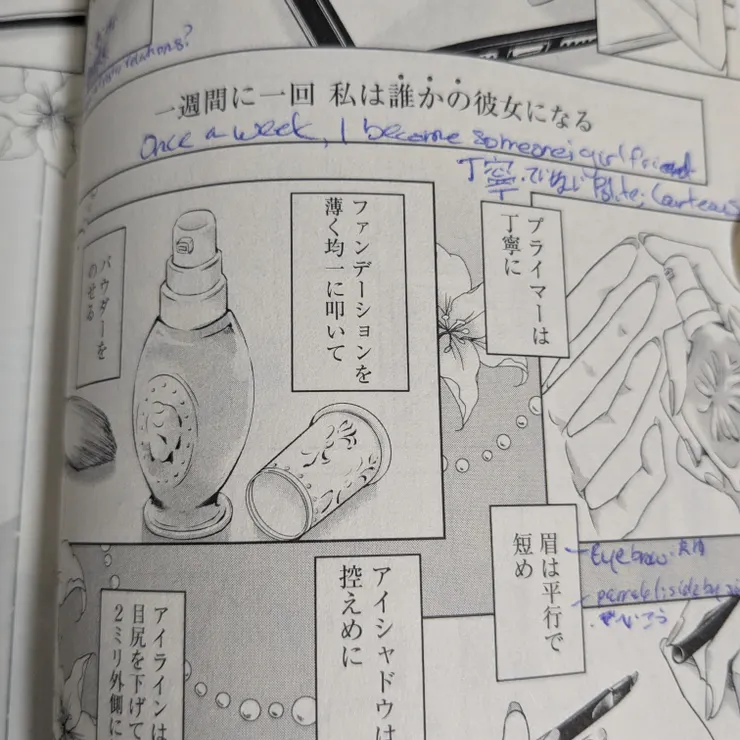 relations?
一週間に一回 私は誰かの彼女になる
Once a week, I become someone's girlfriend
丁寧・ていねい Polite; Courteous
プライマーは
丁寧に
ファンデーションを
薄く均一に叩いて
パウダーを
のせる
眉は平行で
短め
Eyebrow:
parallel; side by
アイシャドウは
控えめに
アイラインは
目尻を下げて
2ミリ外側に